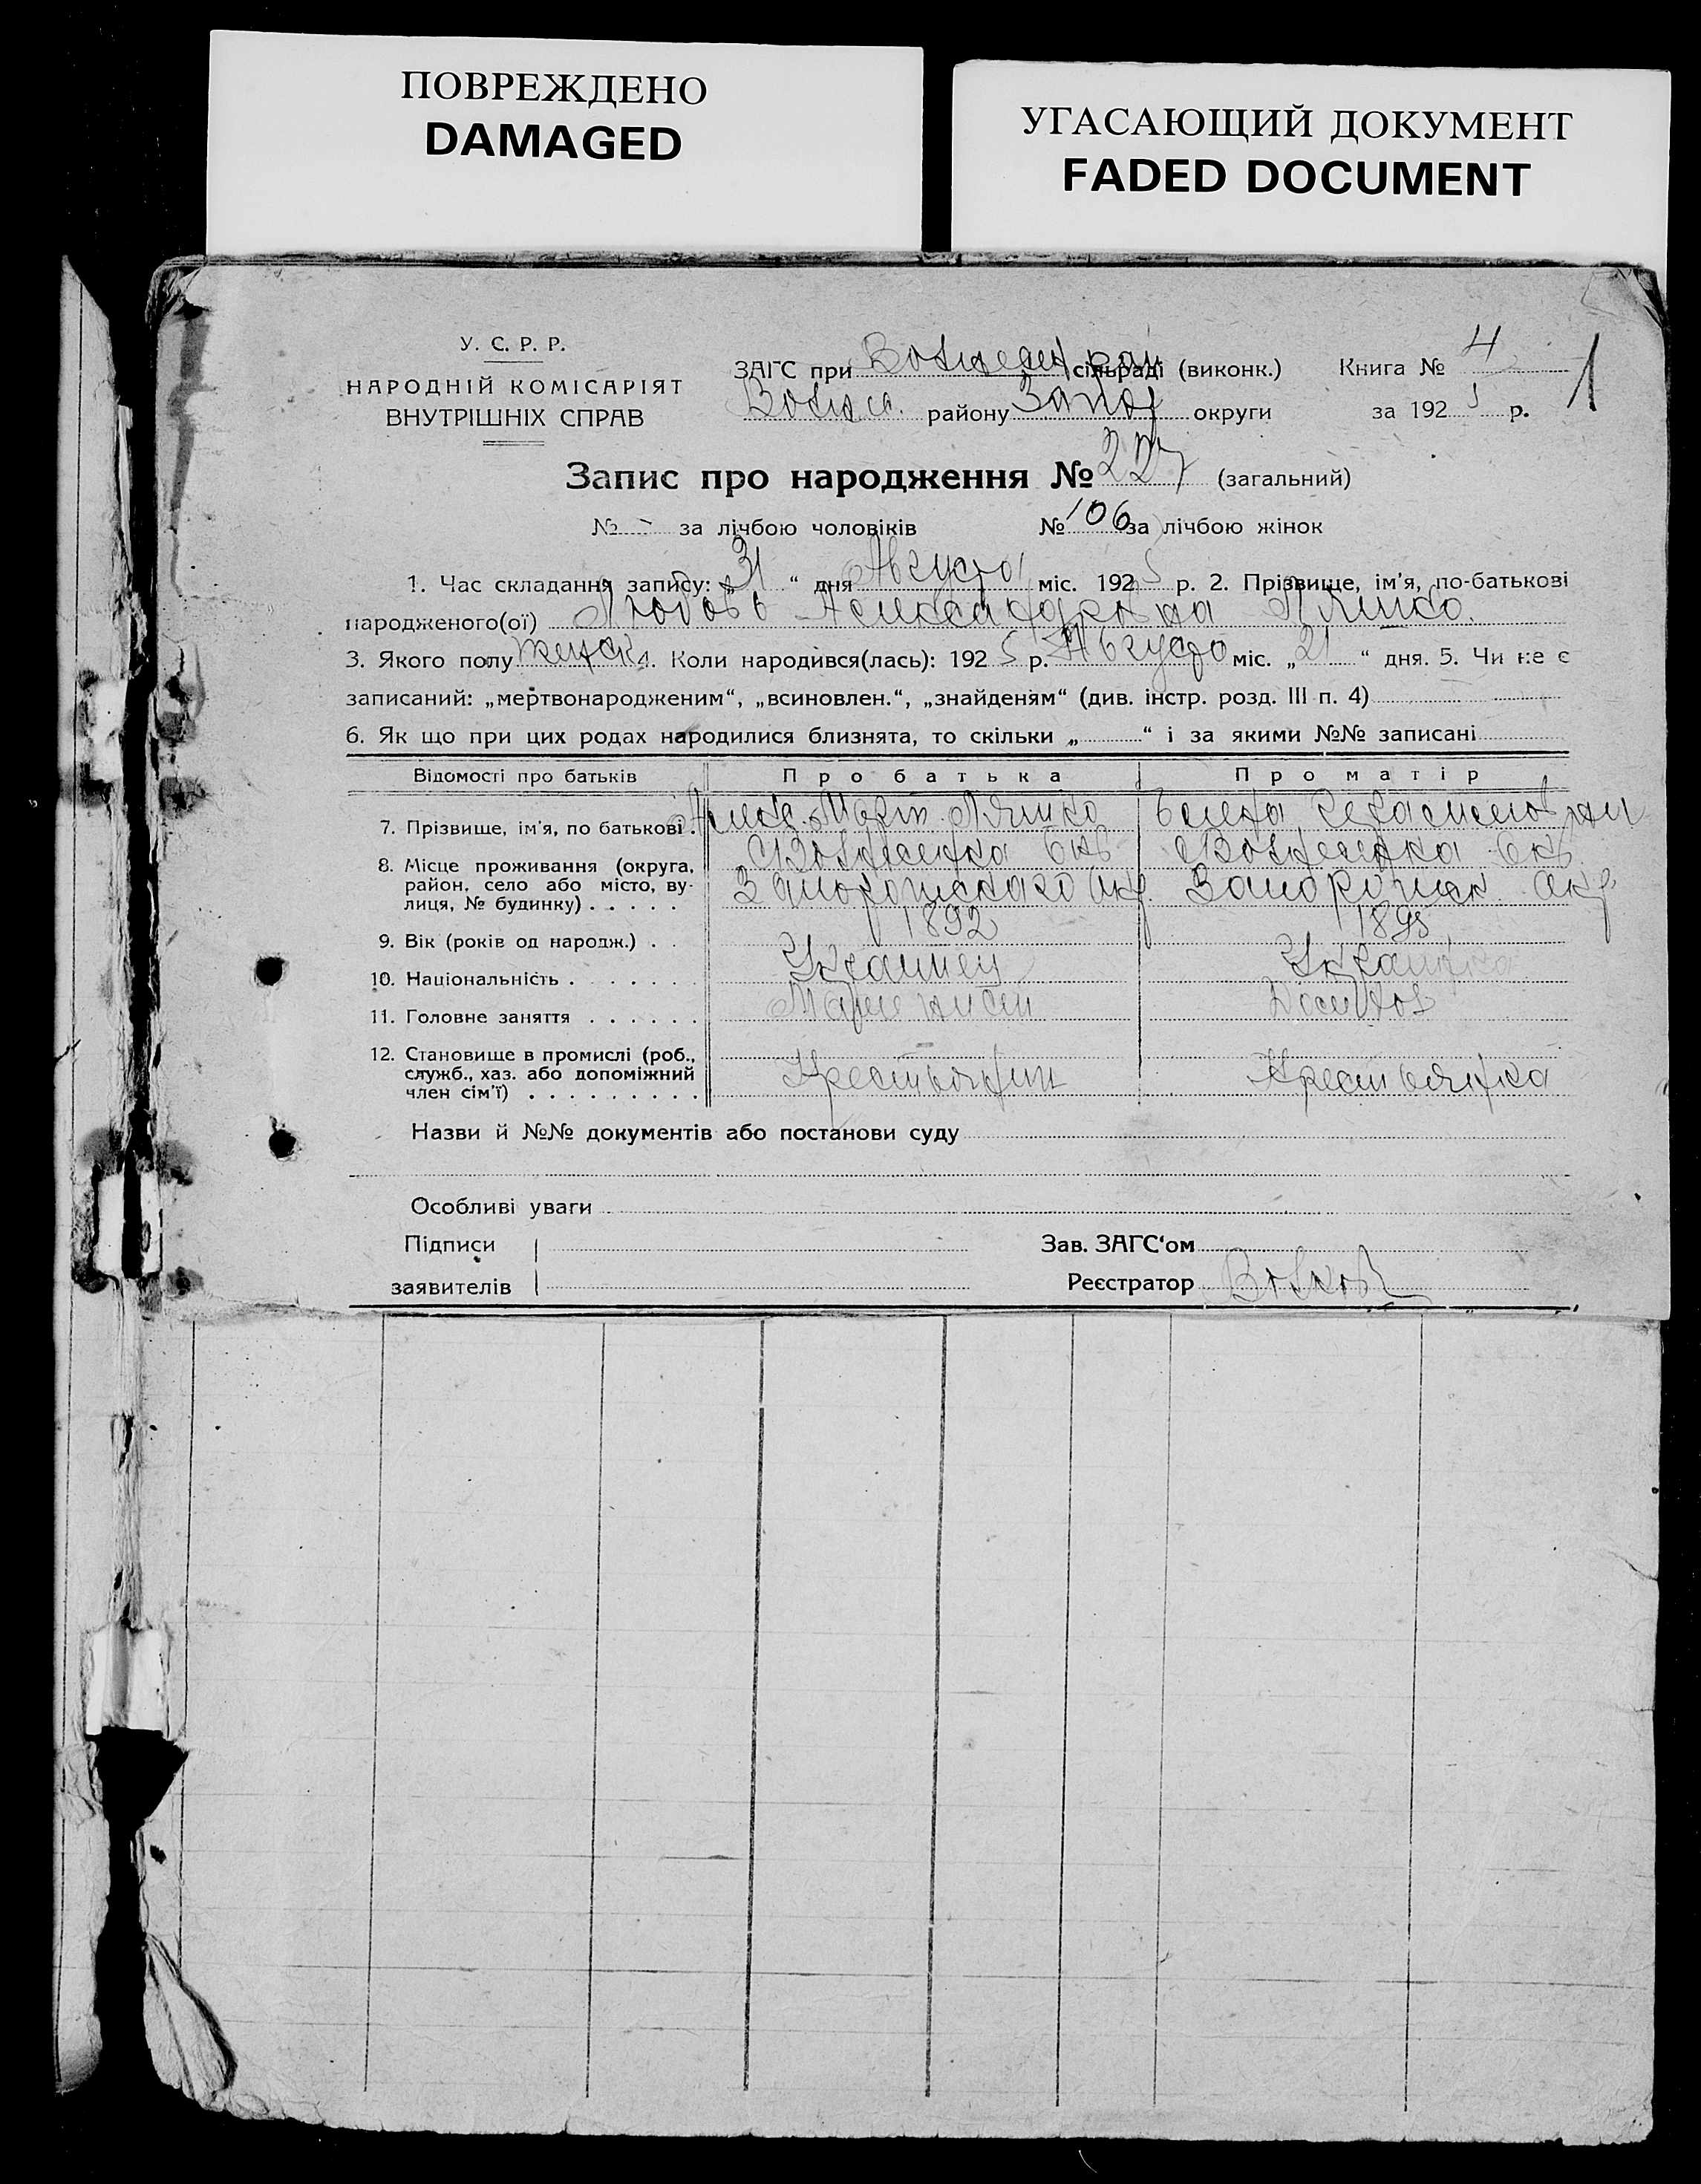 ПОВРЕЖДЕНО
DAMAGED
УГАСАЮЩИЙ ДОКУМЕНТ
FADED DOCUMENT
У. С. Р. Р.
НАРОДНІЙ КОМІСАРІЯТ
ВНУТРІШНІХ СПРАВ
ЗАГС при сільраді (виконк.) Книга № 4
району Запор округи за 192 5 р.
1
Запис про народження № 227 (загальний)
№ - за лічбою чоловіків № 106 за лічбою жінок
1. Час складання запису: „ 31 “ дня Августа міс. 192 5 р. 2. Прізвище, ім'я, по-батькові
народженого(ої) Любовь Александровна Ляшко.
3. Якого полу женск 4. Коли народився(лась): 192 5 р. Августа міс. „ 21 “ дня. 5. Чи не є
записаний: „мертвонародженим“, „всиновлен.“, „знайденям“ (див. інстр. розд. III п. 4)
6. Як що при цих родах народилися близнята, то скільки „ “ і за якими №№ записані
Відомості про батьків Про батька Про матір
7. Прізвище, ім'я, по батькові . Алекс. Март. Ляшко Елена
8. Місце проживання (округа, с Вознесенка с Вознесенка
район, село або місто, ву- Запорожскаго окр. Запорожск. окр
лиця, № будинку) . . . . .
9. Вік (років од народж.) . . 1892 1895
10. Національність . . . . . . . Украинец Украинка
11. Головне заняття . . . . . .
12. Становище в промислі (роб.,
служб., хаз. або допоміжний Крестьянин Крестьянка
член сім'ї) . . . . . . . . .
Назви й №№ документів або постанови суду
Особливі уваги
Підписи Зав. ЗАГС'ом
заявителів Реєстратор